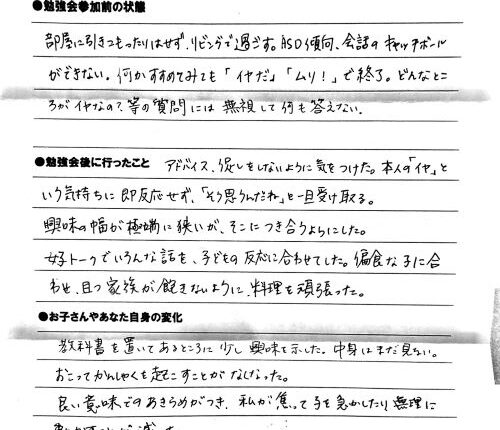 ●勉強会参加前の状態
部屋に引きこもったりはせず、リビングで過ごす。ASD傾向、会話のキャッチボール
ができない。何かすすめてみても「イヤだ」「ムリ!」で終了。どんなとこ
ろがイヤなの?等の質問には無視して何も答えない。
●勉強会後に行ったこと アドバイス、促しをしないように気をつけた。本人の「イヤ」と
いう気持ちに即反応せず、「そう思うんだね」と一旦受け取る。
興味の幅が極端に狭いが、そこにつき合うようにした。
女子トークでいろんな話を、子どもの反応に合わせてした。偏食な子に合
わせ、且つ家族が飽きないように、料理を頑張った。
●お子さんやあなた自身の変化
教科書を置いてあるところに少し興味を示した。中身はまだ見ない。
おこってかんしゃくを起こすことがなくなった。
良い意味でのあきらめがつき、私が焦って子を急かしたり無理に